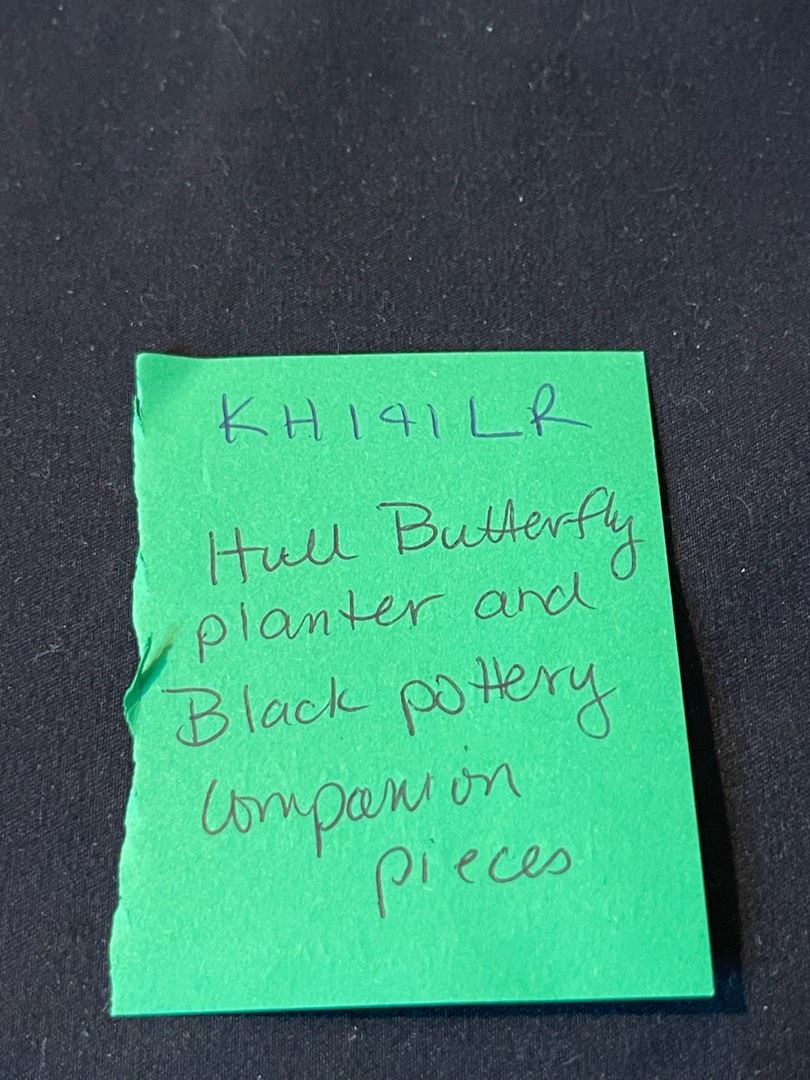 KH141LR
Hull Butterfly
planter and
Black pottery
companion
pieces